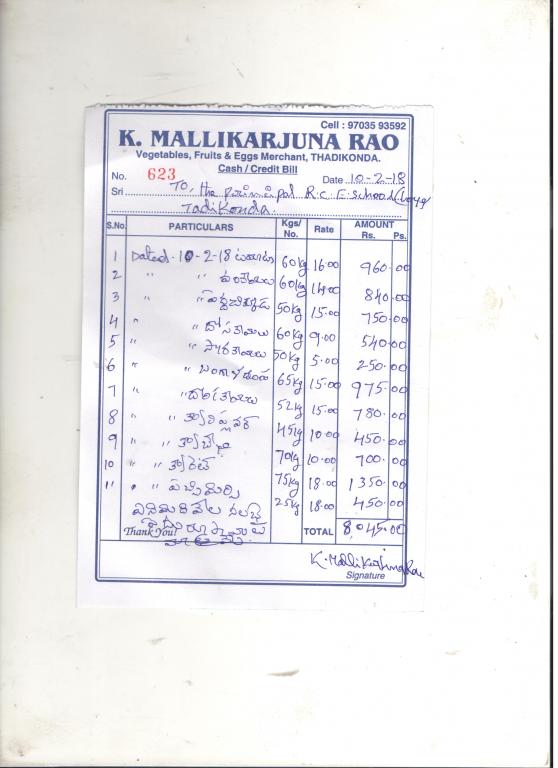 Cell : 97035 93592
K. MALLIKARJUNA RAO
Vegetables, Fruits & Eggs Merchant, THADIKONDA.
Cash / Credit Bill
No. 623 Date 10-2-18
Sri To, the principal R.C.E. School (Boys)
Tadikonda.
S.No. PARTICULARS Kgs/No. Rate AMOUNT Rs. Ps.
1 Dated. 10-2-18 టమాటా 60kg 16.00 960.00
2 " " వంకాయలు 60kg 14.00 840.00
3 " " 50kg 15.00 750.00
4 " " దోసకాయలు 60kg 9.00 540.00
5 " " సొరకాయలు 50kg 5.00 250.00
6 " " బంగాళదుంప 65kg 15.00 975.00
7 " " 52kg 15.00 780.00
8 " " 45kg 10.00 450.00
9 " " 70kg 10.00 700.00
10 " " క్యారెట్ 75kg 18.00 1350.00
11 " " పచ్చిమిర్చి 25kg 18.00 450.00
ఎనిమిదివేల నలభై
Thank You! TOTAL 8,045.00
K. Mallikarjuna Rao
Signature